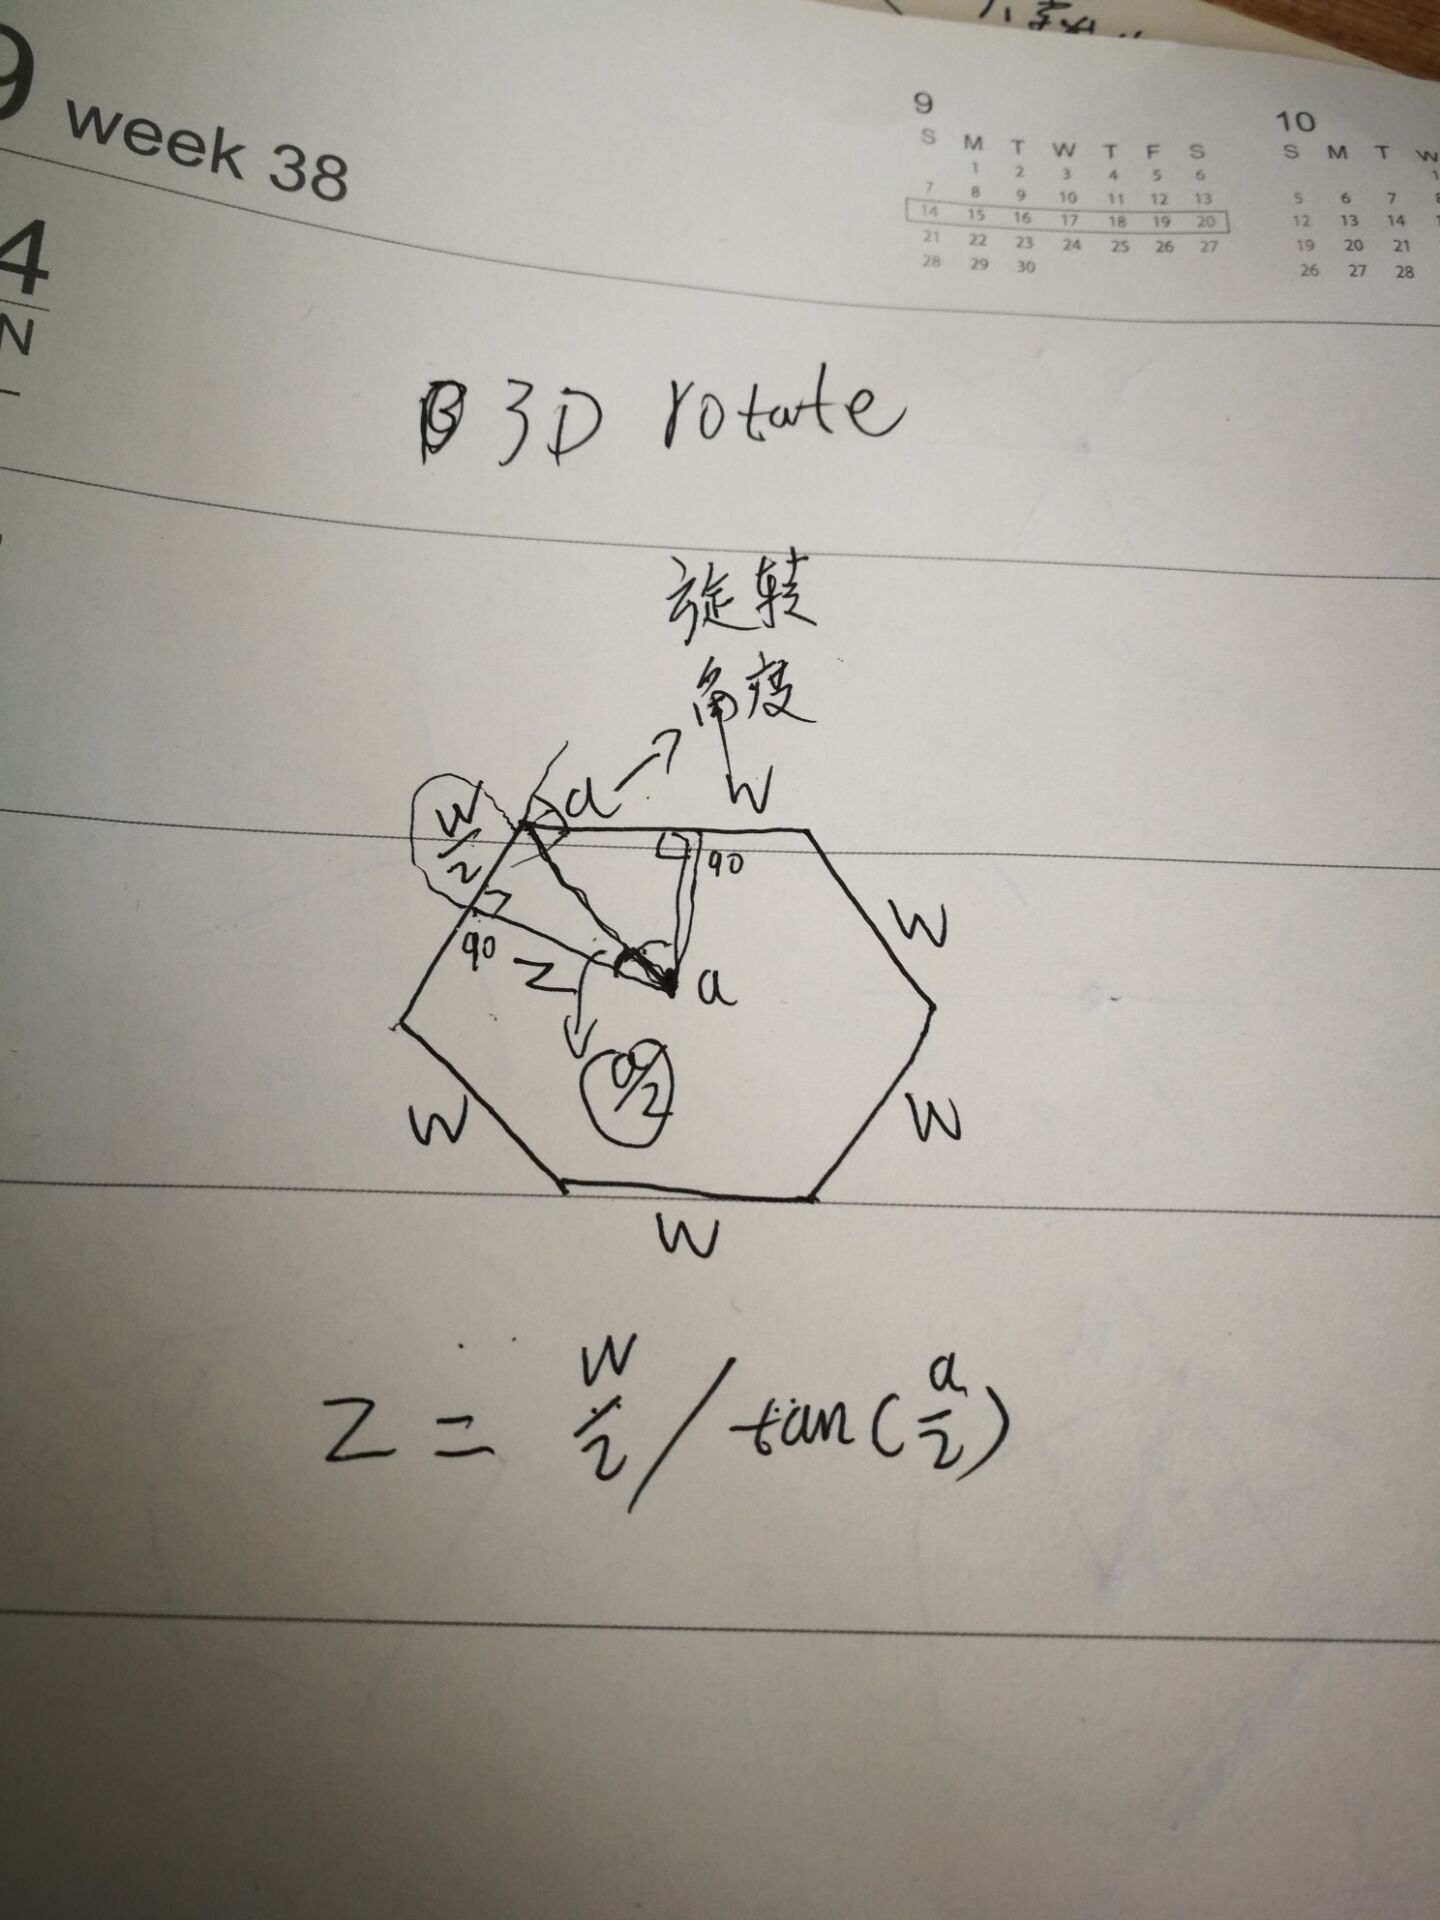 9 week 38
4
N
9
S M T W T F S
1 2 3 4 5 6
7 8 9 10 11 12 13
14 15 16 17 18 19 20
21 22 23 24 25 26 27
28 29 30
10
S M T W
1
5 6 7 8
12 13 14 1
19 20 21
26 27 28
3D rotate
旋转
角度
W
a
W/2
90
90
Z
a
a/2
W
W
W
W
Z = W/2 / tan(a/2)